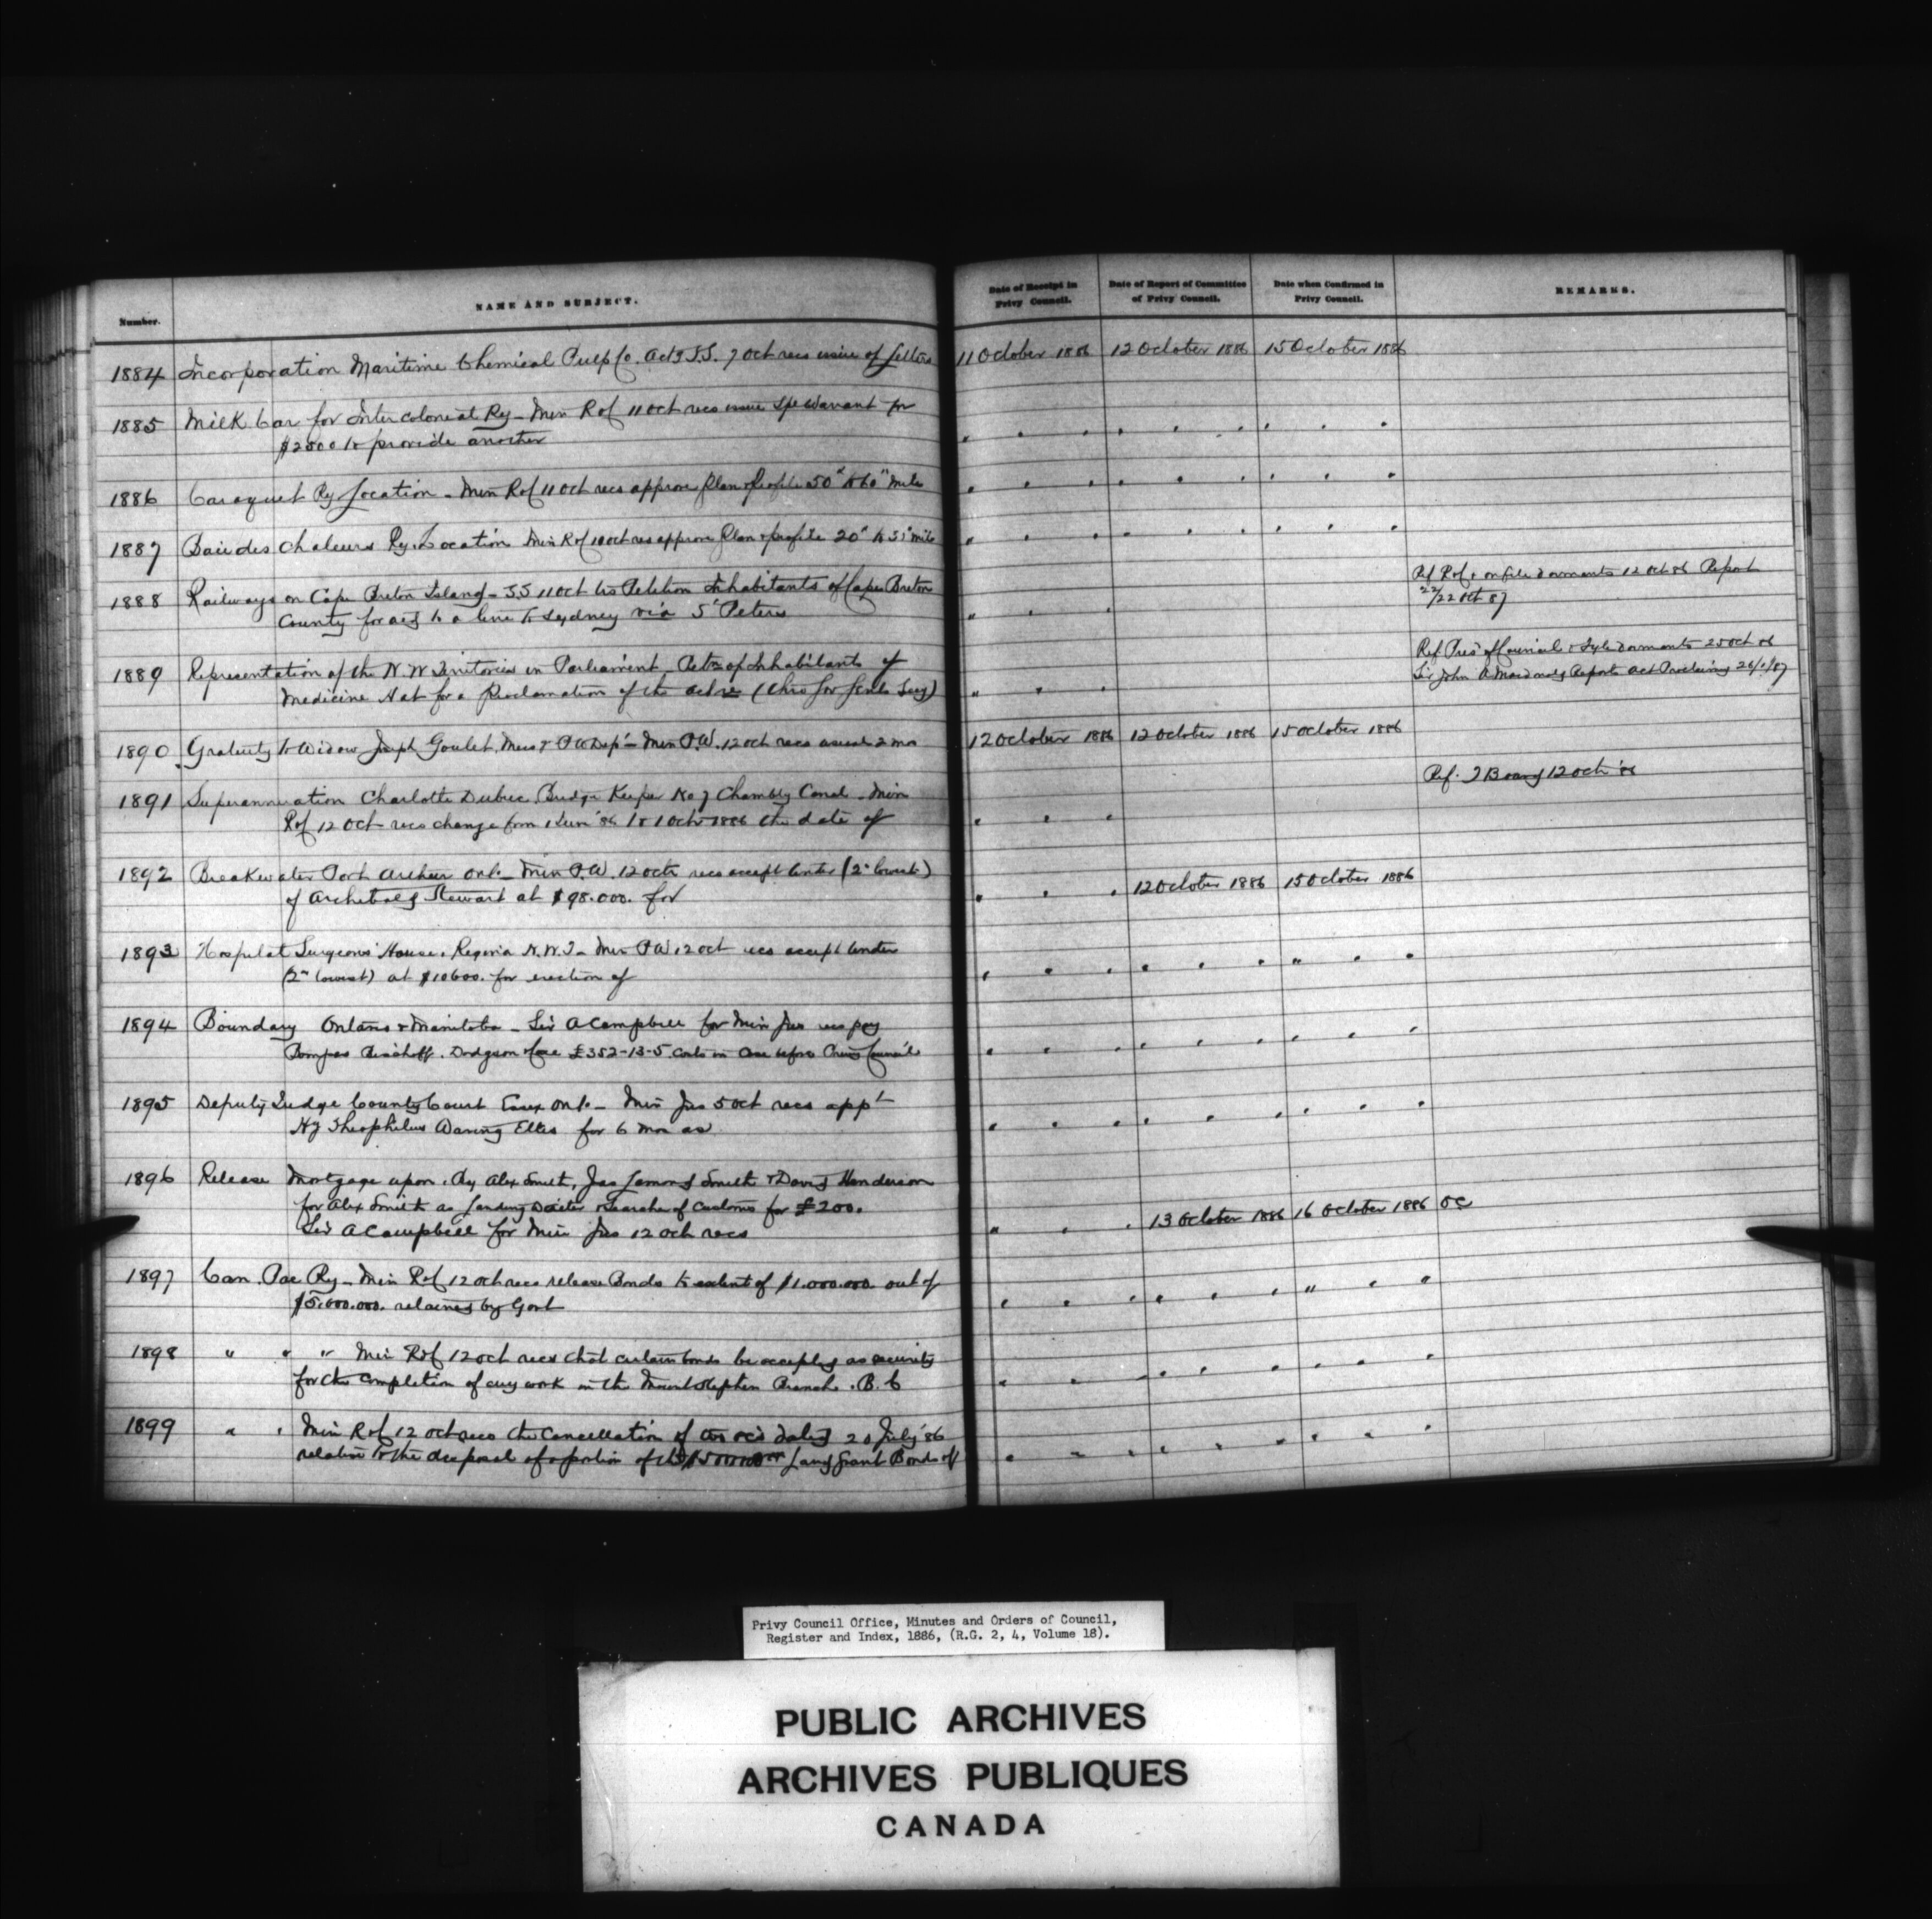 Number. NAME AND SUBJECT. Date of Receipt in Privy Council. Date of Report of Committee of Privy Council. Date when Confirmed in Privy Council. REMARKS.
1884 Incorporation Maritime Chemical Pulp Co. Actg S.S. 7 Oct recs issue of letters 11 October 1886 12 October 1886 15 October 1886
1885 Milk Car for Intercolonial Ry - Min R of 11 Oct recs issue Spe Warrant for
$2500 to provide another " " " " " " " " "
1886 Caraquet Ry Location - Min R of 11 Oct recs approve plan & profile 50" to 60" mile " " " " " " " " "
1887 Baie des Chaleurs Ry Location Min R of 11 Oct recs approve plan & profile 20" to 31" mile " " " " " " " " "
1888 Railways on Cape Breton Island - S.S 11 Oct Petition Inhabitants of Cape Breton Ref R of & on file dormants 12 Oct 86 Report
County for aid to a line to Sydney via St Peters " " " 22/22 Oct 87
1889 Representation of the N.W Territories in Parliament - Petn of Inhabitants of Ref Pres of Council & file dormants 25 Oct 86
Medicine Hat for a Proclamation of the act re (thro Gov Genls Secy) " " " Sir John A Macdonald Reports act Proclaimed 26/1/87
1890 Gratuity to Widow Joseph Goulet, P W Dept - Min P.W. 12 Oct recs 2 mos 12 October 1886 12 October 1886 15 October 1886
1891 Superannuation Charlotte Dubuc Bridge Keeper No 7 Chambly Canal - Min Ref. T Board 12 Oct '86
R of 12 Oct recs change from 1 '86 to 1 Octr 1886 the date of " " "
1892 Breakwater Port Arthur Ont - Min P.W. 12 Octr recs accept tender (2nd lowest)
of Archibald Stewart at $98.000. for " " " 12 October 1886 15 October 1886
1893 Hospital Surgeons House, Regina N.W.T - Min P W 12 Oct recs accept tender
(2nd lowest) at $10600. for erection of " " " " " " " " "
1894 Boundary Ontario & Manitoba - Sir A Campbell for Min Jus recs pay
Bompas Bischoff, Dodgson & Coxe £352-13-5 costs in case before Privy Council " " " " " " " " "
1895 Deputy Judge County Court Essex Ont. - Min Jus 5 Oct recs appt
Hy Theophilus Waring Ellis for 6 mos as " " " " " " " " "
1896 Release Mortgage upon. By Alex Smith, Jas Lamond Smith & David Henderson
for Alex Smith as Landing Waiter & Searcher of Customs for £200.
Sir A Campbell for Min Jus 12 Oct recs " " " 13 October 1886 16 October 1886 OC
1897 Can. Pac Ry - Min R of 12 Oct recs release Bonds to extent of $1.000.000. out of
$5.000.000. retained by Govt " " " " " " " " "
1898 " " " Min R of 12 Oct recs that certain bonds be accepted as security
for the completion of any work in the Mount Stephen Branch. B.C " " " " " " " " "
1899 " " Min R of 12 Oct recs the cancellation of two ocs dated 20 July '86
relative to the disposal of a portion of the $5000000 Land Grant Bonds of " " " " " " " " "
Privy Council Office, Minutes and Orders of Council,
Register and Index, 1886, (R.G. 2, 4, Volume 18).
PUBLIC ARCHIVES
ARCHIVES PUBLIQUES
CANADA